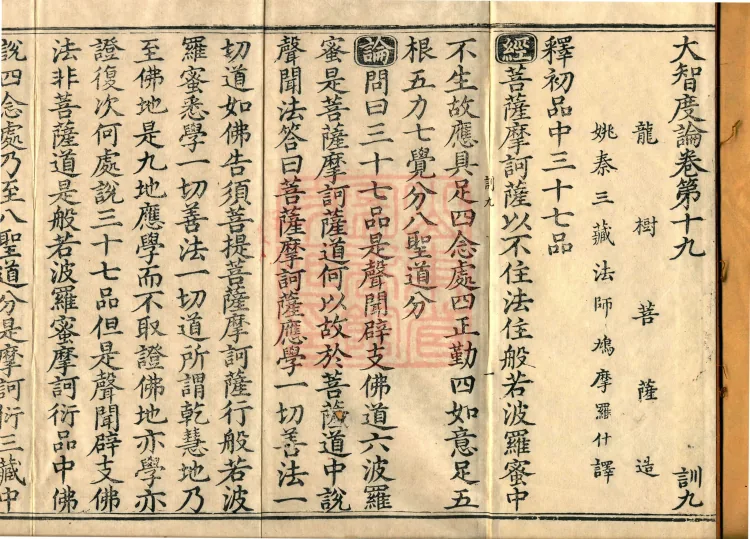 大智度論卷第十九 訓九
龍樹菩薩造
姚秦三藏法師鳩摩羅什譯
釋初品中三十七品
經菩薩摩訶薩以不住法住般若波羅蜜中
不生故應具足四念處四正勤四如意足五
訓九 一
根五力七覺分八聖道分
論問曰三十七品是聲聞辟支佛道六波羅
蜜是菩薩摩訶薩道何以故於菩薩道中說
聲聞法荅曰菩薩摩訶薩應學一切善法一
切道如佛告須菩提菩薩摩訶薩行般若波
羅蜜悉學一切善法一切道所謂乾慧地乃
至佛地是九地應學而不取證佛地亦學亦
證復次何處說三十七品但是聲聞辟支佛
法非菩薩道是般若波羅蜜摩訶衍品中佛
說四念處乃至八聖道分是摩訶衍三藏中